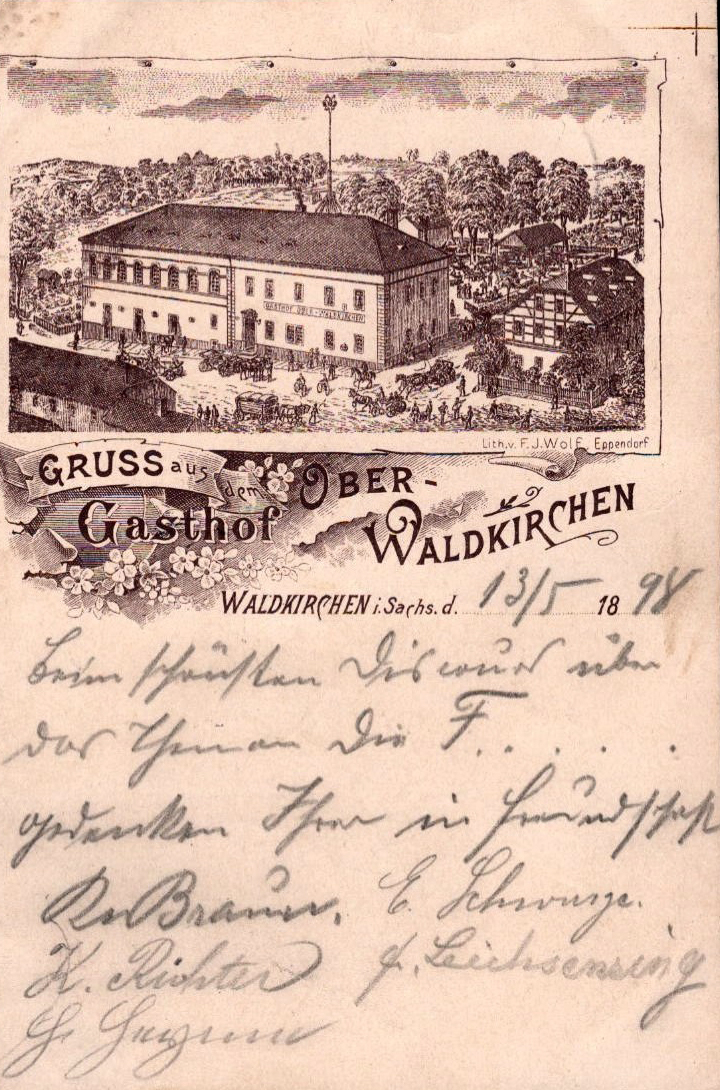 GASTHOF OBER-WALDKIRCHEN
Lith. v. F. J. Wolf, Eppendorf
GRUSS aus dem
Gasthof
OBER-
WALDKIRCHEN
WALDKIRCHEN i. Sachs. d. 13/5 1898
Beim schönsten Discours über
das Theman die F. . . . .
gedenken Ihrer in Freundschaft
Brauer. E. Schwarze.
K. Richter Leichsenring